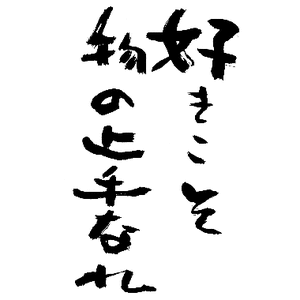 好きこそ
物の上手なれ